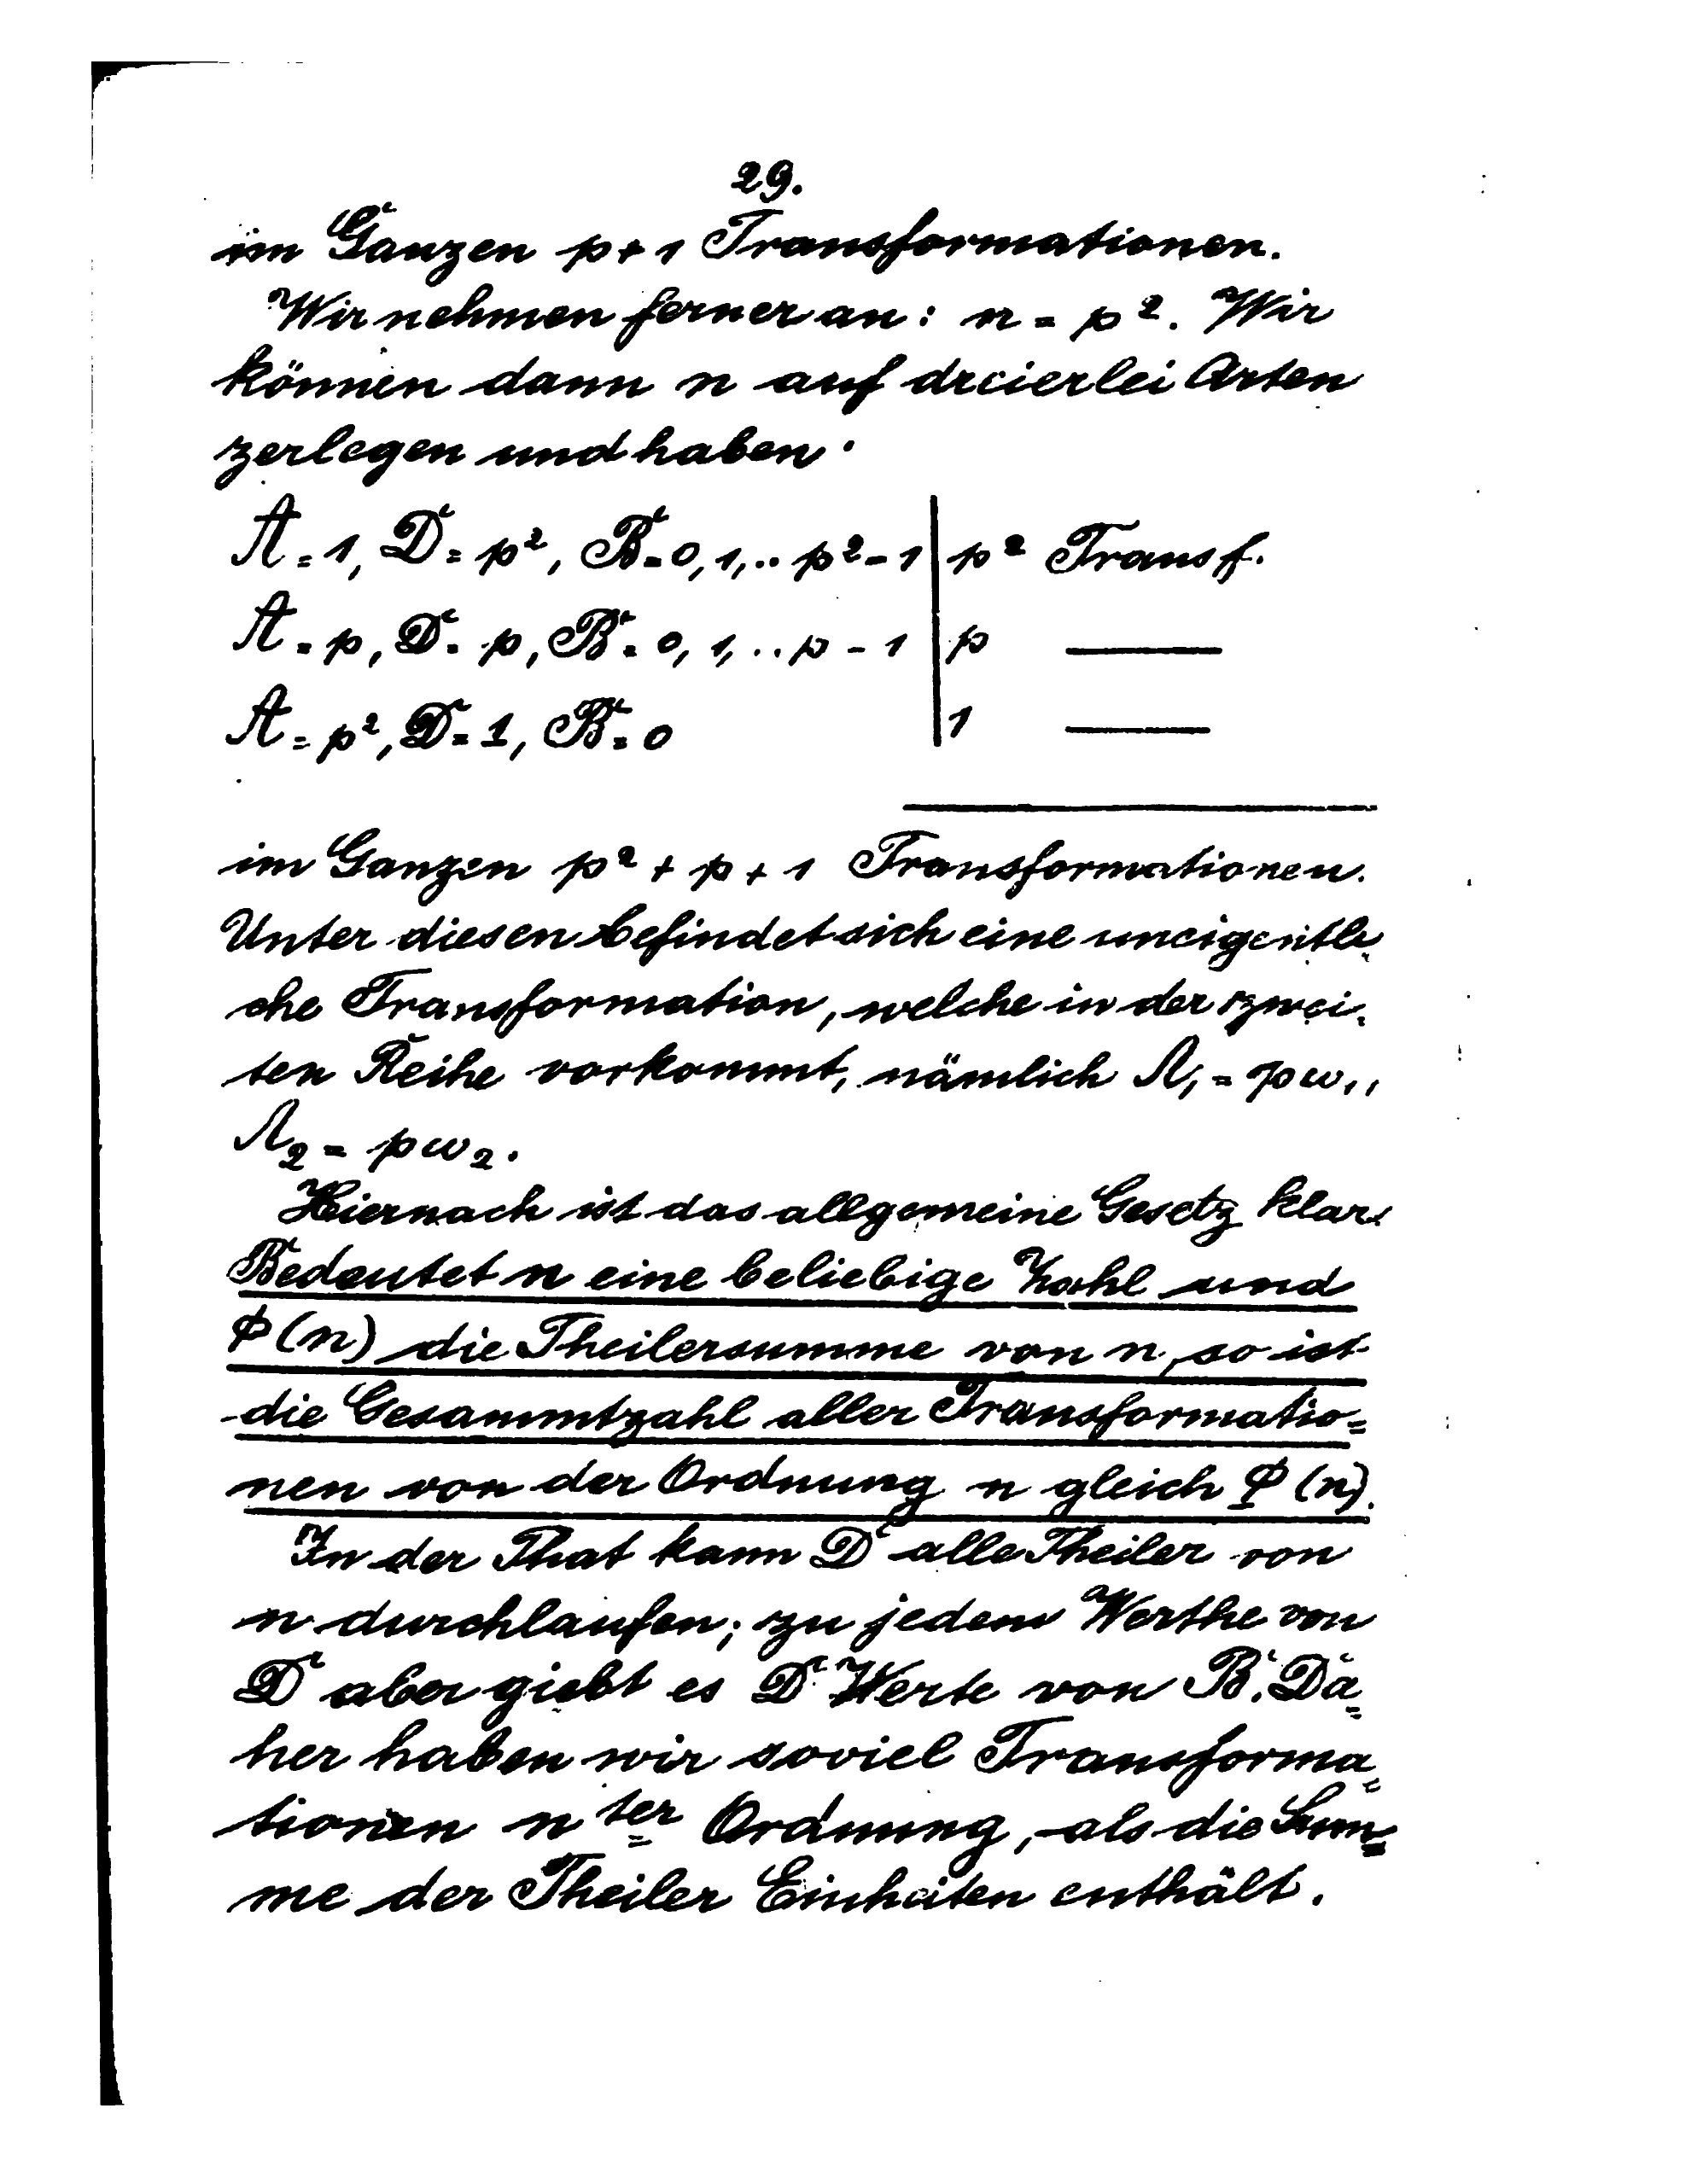 29.
im Ganzen p+1 Transformationen.
Wir nehmen ferner an: n = p². Wir
können dann n auf dreierlei Arten
zerlegen und haben:
A = 1, D = p², B = 0, 1, .. p² - 1 | p² Transf.
A = p, D = p, B = 0, 1, .. p - 1 | p ———
A = p², D = 1, B = 0 | 1 ———
im Ganzen p² + p + 1 Transformationen.
Unter diesen befindet sich eine uneigentli-
che Transformation, welche in der zwei-
ten Reihe vorkommt, nämlich Λ₁ = pω₁,
Λ₂ = pω₂.
Hiernach ist das allgemeine Gesetz klar:
Bedeutet n eine beliebige Zahl und
Φ(n) die Theilersumme von n, so ist
die Gesammtzahl aller Transformatio=
nen von der Ordnung n gleich Φ(n).
In der That kann D alle Theiler von
n durchlaufen; zu jedem Werthe von
D aber giebt es D Werte von B. Da=
her haben wir soviel Transforma=
tionen n ter Ordnung, als die Sum=
me der Theiler Einheiten enthält.